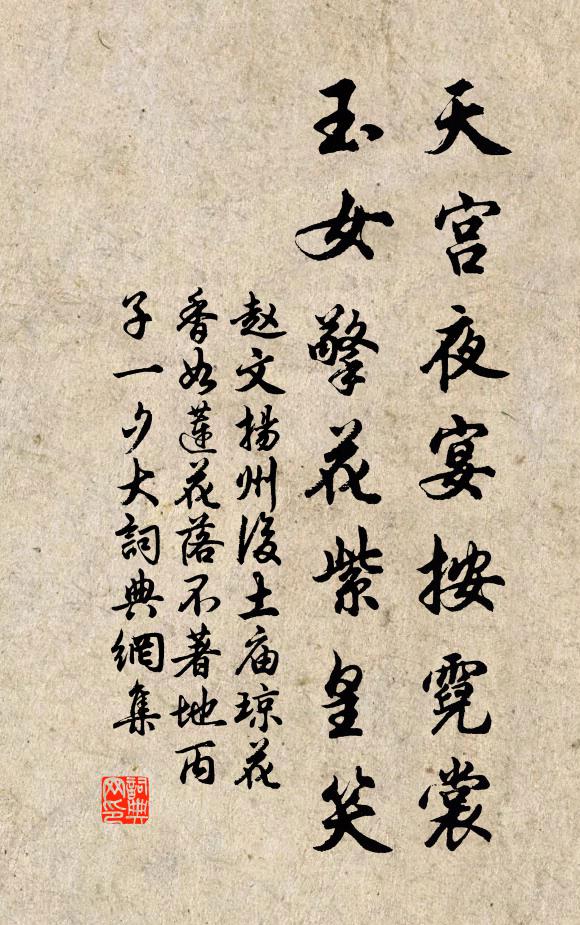 天宫夜宴按霓裳
玉女擎花紫皇笑
赵文揚州後土庙琼花
香如蓮花落不著地丙
子一夕大詞典網集
詞典网印